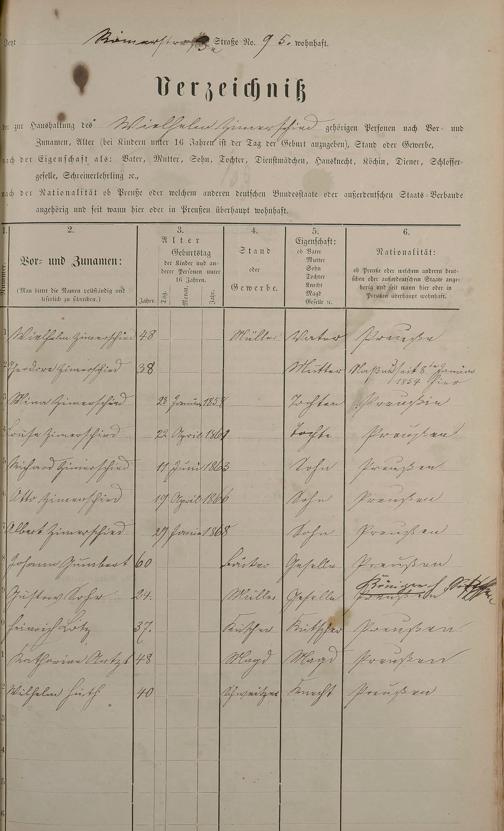 Römerstraße Straße No. 95. wohnhaft.
Verzeichniß
der zur Haushaltung des Wielhelm Zimerschied gehörigen Personen nach Vor- und
Zunamen, Alter (bei Kindern unter 16 Jahren ist der Tag der Geburt anzugeben), Stand oder Gewerbe,
nach der Eigenschaft als: Vater, Mutter, Sohn, Tochter, Dienstmädchen, Hausknecht, Köchin, Diener, Schlosser-
geselle, Schreinerlehrling ꝛc.,
nach der Nationalität ob Preuße oder welchem anderen deutschen Bundesstaate oder außerdeutschen Staats-Verbande
angehörig und seit wann hier oder in Preußen überhaupt wohnhaft.
1. 2. 3. 4. 5. 6.
Nummer.
Vor- und Zunamen:
(Man bittet die Namen vollständig und
leserlich zu schreiben.)
Alter
Jahre.
Geburtstag
der Kinder und an-
derer Personen unter
16 Jahren.
Tag. Monat. Jahr.
Stand
oder
Gewerbe.
Eigenschaft:
ob Vater
Mutter
Sohn
Tochter
Knecht
Magd
Geselle ꝛc.
Nationalität:
ob Preuße oder welchem anderen deut-
schen oder außerdeutschen Staate ange-
hörig und seit wann hier oder in
Preußen überhaupt wohnhaft.
1 Wielhelm Zimerschied 48 Müller Vater Preußen
2 Zimerschied 38 Mutter Naßau seit 8ten Januar
1854 hier
3 Mina Zimerschied 28 Januar 1858 Tochter Preußen
4 Louise Zimerschied 22 April 1861 Tochter Preußen
5 Richard Zimerschied 11 Juni 1863 Sohn Preußen
6 Otto Zimerschied 19 April 1866 Sohn Preußen
7 Albert Zimerschied 27 1868 Sohn Preußen
8 Johann Humbert 60 Bäcker Geselle Preußen
9 Gustav Lohr 24. Müller Geselle Königreich Preußen
10 Heinrich Lotz 37. Kutscher Kutscher Preußen
11 Katharina 48 Magd Magd Preußen
12 Wilhelm Huth 40 Schweitzer Knecht Preußen
3
4
5
6